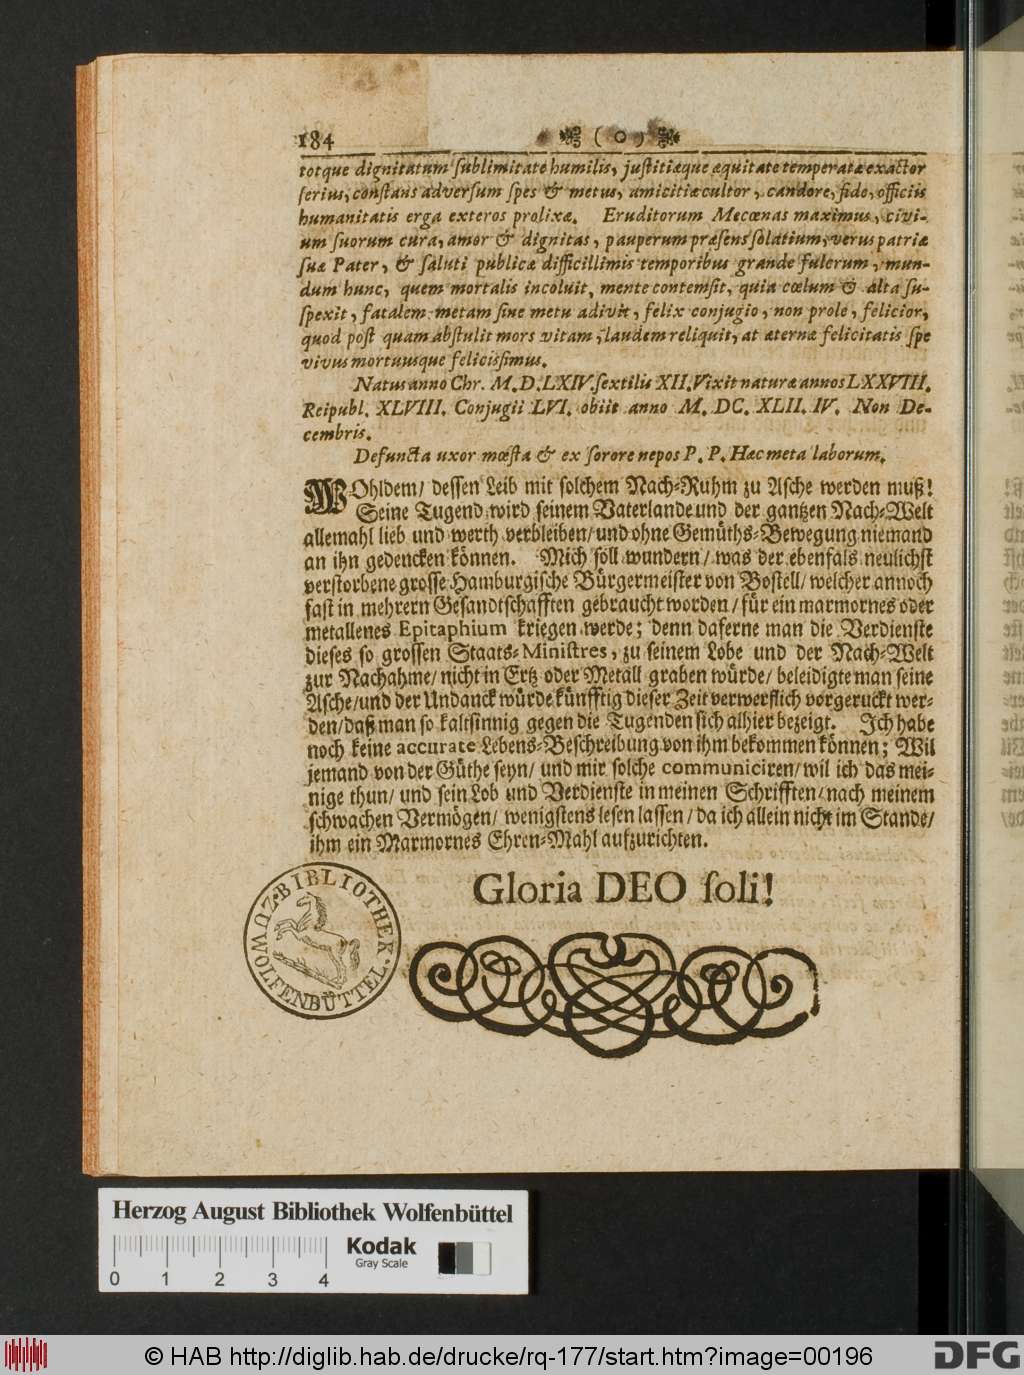 184 ( o )
totque dignitatum ſublimitate humilis, juſtitiæque æquitate temperatæ exactor
ſerius, conſtans adverſum ſpes & metus, amicitiæ cultor, candore, fide, officiis
humanitatis erga exteros prolixæ. Eruditorum Mecœnas maximus, civi-
um ſuorum cura, amor & dignitas, pauperum præſens ſolatium, verus patriæ
ſuæ Pater, & ſaluti publicæ difficillimis temporibus grande fulcrum, mun-
dum hunc, quem mortalis incoluit, mente contemſit, quia cœlum & alta ſu-
ſpexit, fatalem metam ſine metu adivit, felix conjugio, non prole, felicior,
quod poſt quam abſtulit mors vitam, laudem reliquit, at æternæ felicitatis ſpe
vivus mortuusque feliciſſimus.
Natus anno Chr. M.D.LXIV. ſextilis XII. Vixit naturæ annos LXXVIII.
Reipubl. XLVIII. Conjugii LVI. obiit anno M. DC. XLII. IV. Non De-
cembris.
Defuncta uxor mœſta & ex ſorore nepos P. P. Hæc meta laborum.
WOhldem/ deſſen Leib mit ſolchem Nach-Ruhm zu Aſche werden muß!
Seine Tugend wird ſeinem Vaterlande und der gantzen Nach-Welt
allemahl lieb und werth verbleiben/ und ohne Gemüths-Bewegung niemand
an ihn gedencken können. Mich ſoll wundern/ was der ebenfals neulichſt
verſtorbene groſſe Hamburgiſche Bürgermeiſter von Boſtell/ welcher annoch
faſt in mehrern Geſandtſchafften gebraucht worden/ für ein marmornes oder
metallenes Epitaphium kriegen werde; denn daferne man die Verdienſte
dieſes ſo groſſen Staats-Miniſtres, zu ſeinem Lobe und der Nach-Welt
zur Nachahme/ nicht in Ertz oder Metall graben würde/ beleidigte man ſeine
Aſche/ und der Undanck würde künfftig dieſer Zeit verwerflich vorgeruckt wer-
den/ daß man ſo kaltſinnig gegen die Tugenden ſich alhier bezeigt. Ich habe
noch keine accurate Lebens-Beſchreibung von ihm bekommen können; Wil
jemand von der Güthe ſeyn/ und mir ſolche communiciren/ wil ich das mei-
nige thun/ und ſein Lob und Verdienſte in meinen Schrifften/ nach meinem
ſchwachen Vermögen/ wenigſtens leſen laſſen/ da ich allein nicht im Stande/
ihm ein Marmornes Ehren-Mahl aufzurichten.
Gloria DEO ſoli!
BIBLIOTHEK
ZU WOLFENBÜTTEL
Herzog August Bibliothek Wolfenbüttel
Kodak
Gray Scale
0 1 2 3 4
© HAB http://diglib.hab.de/drucke/rq-177/start.htm?image=00196
DFG